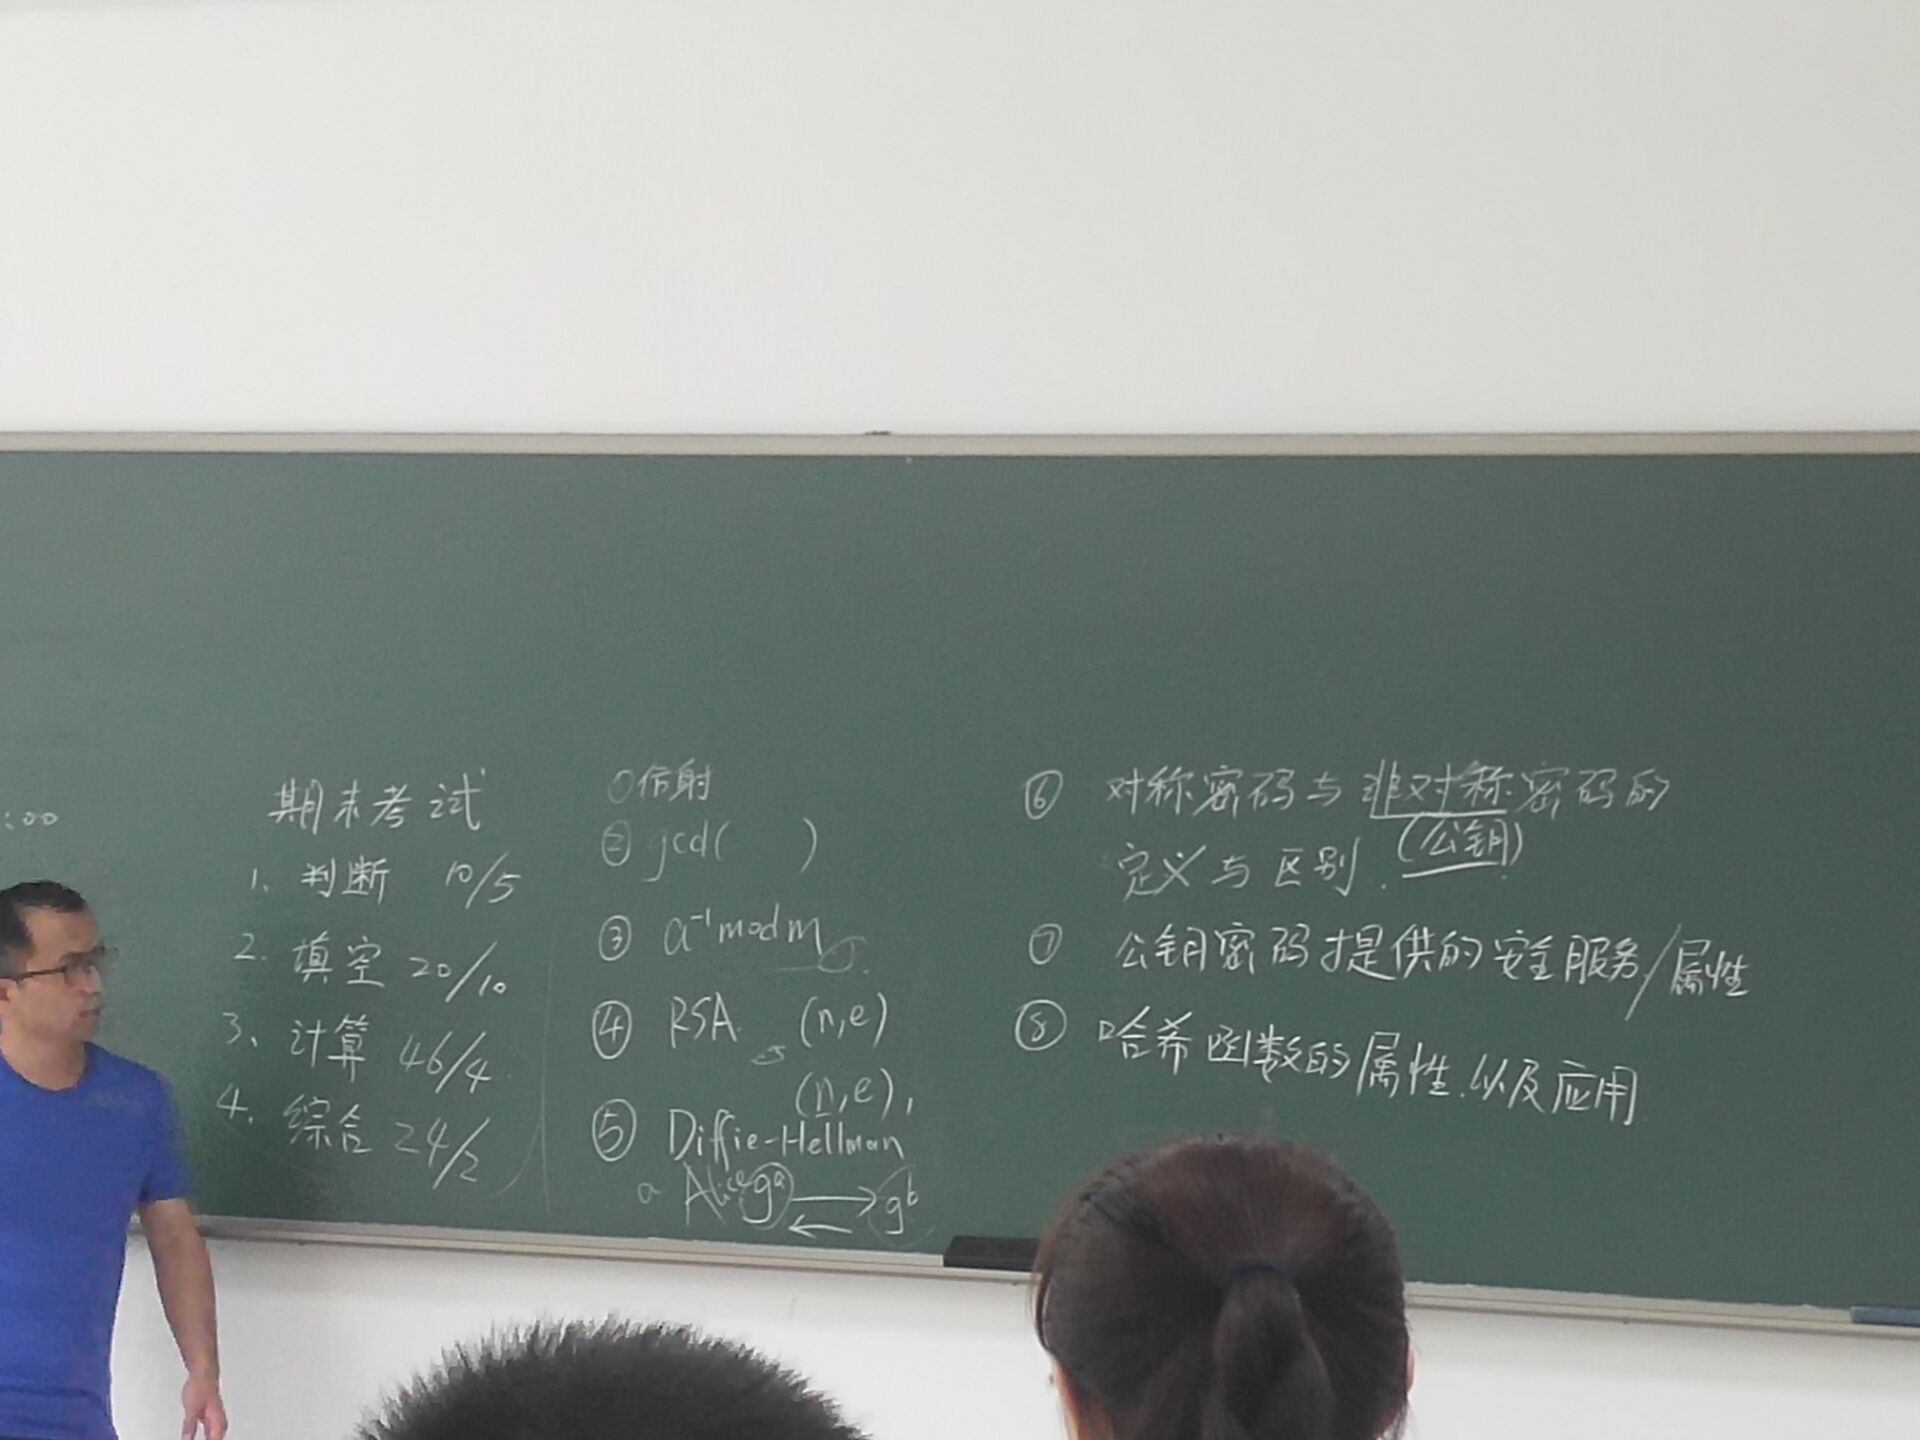 :00
期末考试
1. 判断 10/5
2. 填空 20/10
3. 计算 46/4
4. 综合 24/2
①仿射
② gcd( )
③ a⁻¹ mod m
④ RSA (n,e)
(n,e),
⑤ Diffie-Hellman
a Alice gᵃ ⇄ gᵇ
⑥ 对称密码与非对称密码的
(公钥)
定义与区别.
⑦ 公钥密码提供的安全服务/属性
⑧ 哈希函数的属性.以及应用